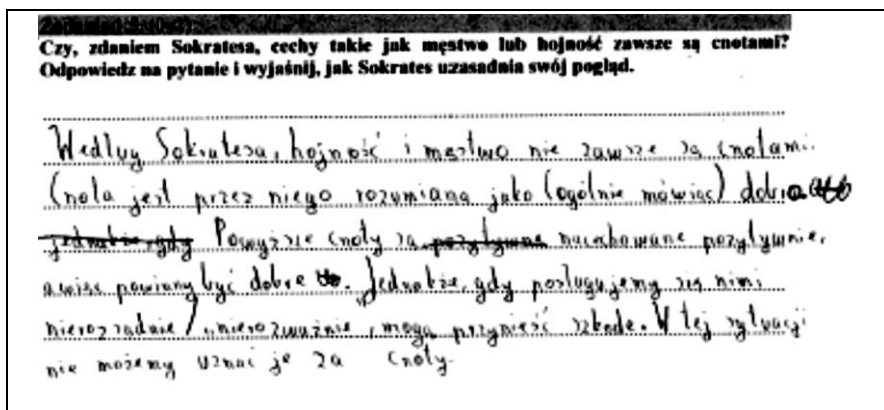 Czy, zdaniem Sokratesa, cechy takie jak męstwo lub hojność zawsze są cnotami?
Odpowiedz na pytanie i wyjaśnij, jak Sokrates uzasadnia swój pogląd.
Według Sokratesa, hojność i męstwo nie zawsze są cnotami.
Cnota jest przez niego rozumiana jako (ogólnie mówiąc) dobro
Powyższe cnoty są nacechowane pozytywnie,
a więc powinny być dobre. Jednakże, gdy posługujemy się nimi
nierozsądnie / nierozważnie, mogą przynieść szkodę. W tej sytuacji
nie możemy uznać je za cnoty.